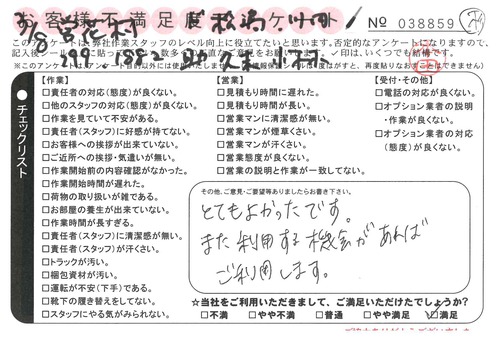 お客様不満足度
No 038859
チェックリスト
【作業】
□責任者の対応(態度)が良くない。
□他のスタッフの対応(態度)が良くない。
□作業を見ていて不安がある。
□責任者(スタッフ)に好感が持てない。
□お客様への挨拶が出来ていない。
□ご近所への挨拶・気遣いが無い。
□作業開始前の内容確認がなかった。
□作業開始時間が遅れた。
□荷物の取り扱いが雑である。
□お部屋の養生が出来ていない。
□作業時間が長すぎる。
□責任者(スタッフ)に清潔感が無い。
□責任者(スタッフ)が汗くさい。
□トラックが汚い。
□梱包資材が汚い。
□運転が不安(下手)である。
□靴下の履き替えをしてない。
□スタッフにやる気がみられない。
【営業】
□見積もり時間に遅れた。
□見積もり時間が長い。
□営業マンに清潔感が無い。
□営業マンが煙草くさい。
□営業マンが汗くさい。
□営業態度が良くない。
□営業の説明と作業が一致してない。
【受付・その他】
□電話の対応が良くない。
□オプション業者の説明
・作業が良くない。
□オプション業者の対応
(態度)が良くない。
その他、ご意見・ご要望等ありましたらお書き下さい。
とてもよかったです。
また利用する機会があれば
ご利用します。
☆当社をご利用いただきまして、ご満足いただけたでしょうか?
□不満 □やや不満 □普通 □やや満足 ☑満足